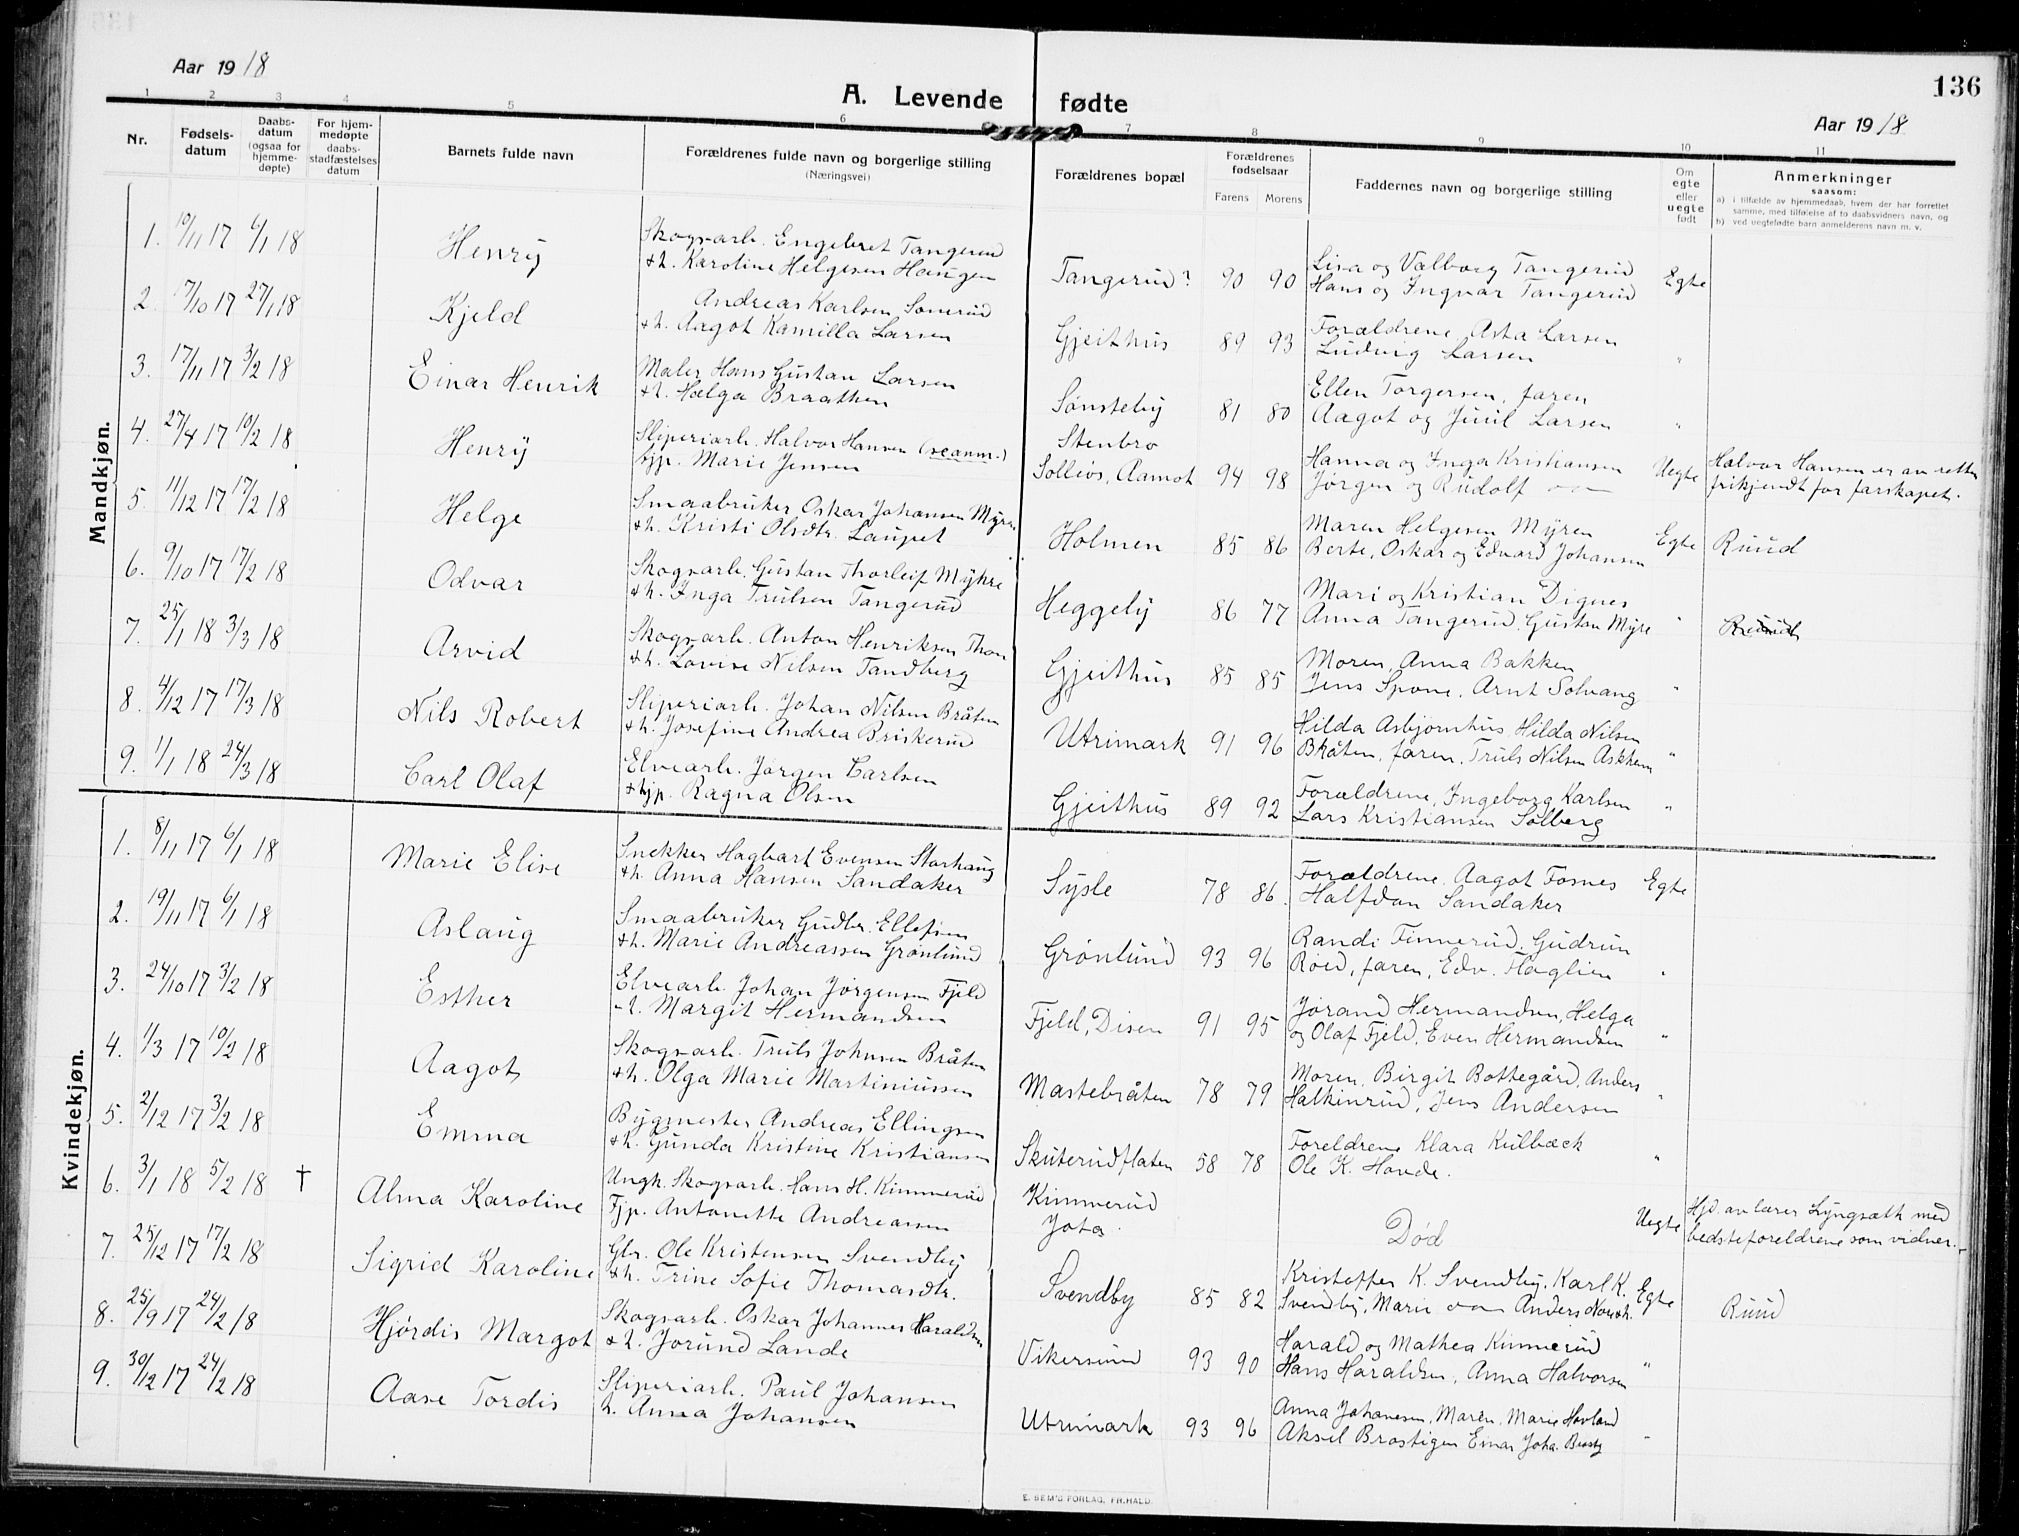 136
Aar 1918
A. Levende fødte
Aar 1918
1 2 3 4 5 6 7 8 9 10 11
Nr.
Fødsels-
datum
Daabs-
datum
(ogsaa for
hjemme-
døpte)
For hjem-
medøpte
daabs-
stadfæstelses
datum
Barnets fulde navn
Forældrenes fulde navn og borgerlige stilling
(Næringsvei)
Forældrenes bopæl
Forældrenes
fødselsaar
Farens Morens
Faddernes navn og borgerlige stilling
Om
egte
eller
uegte
født
Anmerkninger
saasom:
a) i tilfælde av hjemmedaab, hvem der har forrettet
samme, med tilføielse af to daabsvidners navn, og
b) ved uegtefødte barn anmelderens navn m. v.
Mandkjøn.
1. 10/11 17 6/1 18 Henry
Skogsarb. Engebret Tangerud
& h. Karoline Helgesen Haugen
Tangerud? 90 90
Lisa og Valborg Tangerud
Hans og Ingvar Tangerud
Egte
2. 17/10 17 27/1 18 Kjeld
Andreas Karlsen Sønerud
& h. Aagot Kamilla Larsen
Gjeithus 89 93
Forældrene, Asta Larsen
Ludvig Larsen
"
3. 17/11 17 3/2 18 Einar Henrik
Maler Hans Gustav Larsen
& h. Helga Braathen
Sønsteby 81 80
Ellen Torgersen, faren
Aagot og Juul Larsen
"
4. 27/4 17 10/2 18 Henry
Sliperiarb. Halvor Hansen (se anm.)
Pjp. Marie Jensen
Stenbro
Solliøs, Aamot 94 98
Hanna og Inga Kristiansen
Jørgen og Rudolf
Uegte
Halvor Hansen er av retten
frikjendt for farskapet.
5. 11/12 17 17/2 18 Helge
Smaabruker Oskar Johansen Myren
& h. Kristi Olsdtr. Laupet
Holmen 85 86
Maren Helgesen Myren
Berte, Oskar og Edvard Johansen
Egte
Ruud
6. 9/10 17 17/2 18 Odvar
Skogsarb. Gustav Thorleif Myhre
& h. Inga Trulsen Tangerud
Heggeby 86 77
Mari og Kristian Dignes
Anna Tangerud. Gustav Myre
"
Ruud
7. 25/1 18 3/3 18 Arvid
Skogsarb. Anton Henriksen Thon
& h. Lovise Nilsen Tandberg
Gjeithus 85 85
Moren, Anna Bakken
Jens Spone, Arnt Solvang
"
8. 4/12 17 17/3 18 Nils Robert
Sliperiarb. Johan Nilsen Bråten
& h. Josefine Andrea Briskerud
Utrimark 91 96
Hilda Asbjørnhus, Hilda Nilsen
Bråten, faren, Truls Nilsen Askheim
"
9. 1/1 18 24/3 18 Carl Olaf
Elvearb. Jørgen Carlsen
& hjp. Ragna Olsen
Gjeithus 89 92
Forældrene, Ingeborg Karlsen
Lars Kristiansen Solberg
"
Kvindekjøn.
1. 8/11 17 6/1 18 Marie Elise
Snekker Hagbart Evensen Storhaug
& h. Anna Hansen Sandaker
Sysle 78 86.
Forældrene, Aagot Fosnes
Halfdan Sandaker
Egte
2. 19/11 17 6/1 18 Aslaug
Smaabruker Gudbr. Ellefsen
& h. Marie Andreassen Grønlund
Grønlund 93 96
Randi Finnerud, Gudrun
Røed, faren, Edv. Haglien
"
3. 24/10 17 3/2 18 Esther
Elvearb. Johan Jørgensen Fjeld
& h. Margit Hermandsen
Fjeld, Disen 91 95
Jørand Hermandsen, Helga
og Olaf Fjeld, Even Hermandsen
"
4. 1/3 17 10/2 18 Aagot
Skogsarb. Truls Johnsen Bråten
& h. Olga Marie Martiniussen
Mastebråten 78 79
Moren, Birgit Bottegård, Anders
Halkinrud, Jens Andersen
"
5. 2/12 17 3/2 18 Emma
Bygmester Andreas Ellingsen
& h. Gunda Kristine Kristiansen
Skuterudflaten 58 78
Foreldrene Klara Kulbæck
Ole K. Hovde.
"
6. 3/1 18 5/2 18 † Alma Karoline
Ungk. Skogsarb. Hans H. Kimmerud
Pjp. Antonette Andreassen
Kimmerud
Jota.
Død
Uegte
Hjd. av lærer Lyngsæth med
bedsteforeldrene som vidner.
7. 25/12 17 17/2 18 Sigrid Karoline
Gbr. Ole Kristensen Svendby
& h. Trine Sofie Thomasdtr.
Svendby 85 82
Kristoffer K. Svendby, Karl K.
Svendby, Marie Anders
Egte
Ruud
8. 25/9 17 24/2 18 Hjørdis Margot
Skogsarb. Oskar Johannes Haraldsen
& h. Jorund Lande
Vikersund 93 90
Harald og Mathea Kimmerud
Hans Haraldsen, Anna Halvorsen
"
9. 30/12 17 24/2 18 Aase Tordis
Sliperiarb. Paul Johansen
h. Anna Johansen
Utrimark 93 96
Anna Johanesen, Maren, Marie Hovland
Aksel Brostigen Einar Joha. Brostg
"
E. SEM'S FORLAG, FR.HALD.